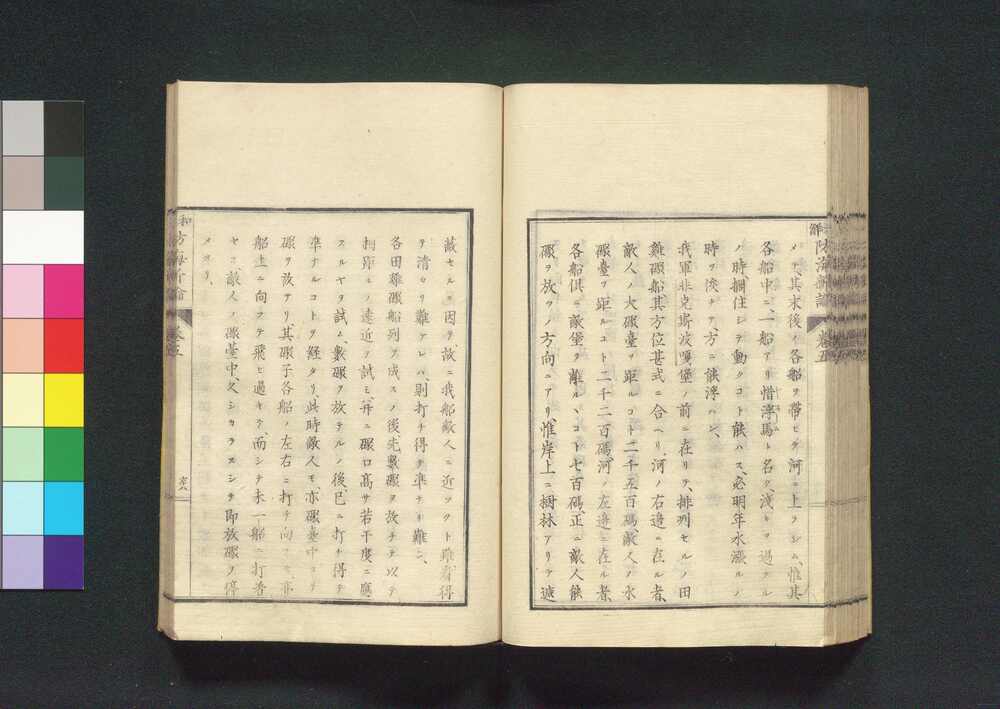 メテ、其末後ノ各船ヲ帶ヒテ河ニ上ラシム、惟其
各船中ニ、一船アリ惜澪馬ト名ク、淺キヲ過クル
ノ時、擱住シテ動クコト能ハス、必明年水漲ルノ
時ヲ俟チテ、方ニ能浮ハン、
我軍非克斯波嘎堡ノ前ニ在リテ、排列セルノ田
雞礮船其方位甚式ニ合ヘリ、河ノ右邊ニ在ル者、
敵人ノ大礮臺ヲ距ルコト二千五百碼、敵人ノ水
礮臺ヲ距ルコト二千二百碼、河ノ左邊ニ在ル者、
各船俱ニ敵堡ヲ離ルヽコト七百碼、正ニ敵人能
礮ヲ放ツノ方向ニアリ、惟岸上ニ樹林アリテ遮
藏セルニ因ヲ故ニ我船敵人ニ近ヲクト雖看得
ヲ清セリ難ケレハ、則打チ得テ準キリ難シ、
各田雞礮船列ヲ成スノ後先數礮ヲ放チテ以テ
相距ルノ遠近ヲ試ミ、幷ニ礮口髙サ若干度ニ應
スルヤヲ試ム、數礮ヲ放テルノ後已ニ打チ得テ
準ナルコトヲ經タリ、此時敵人モ、亦礮臺中ヨリ
礮ヲ放テリ其礮子各船ノ左右ニ打チ向フモ亦
船上ニ向フテ飛ヒ過キテ、而シテ未一船ニ打着
セス、敵人ノ礮臺中、久シカラスシテ即放礮ヲ停
メヨリ、
卷五